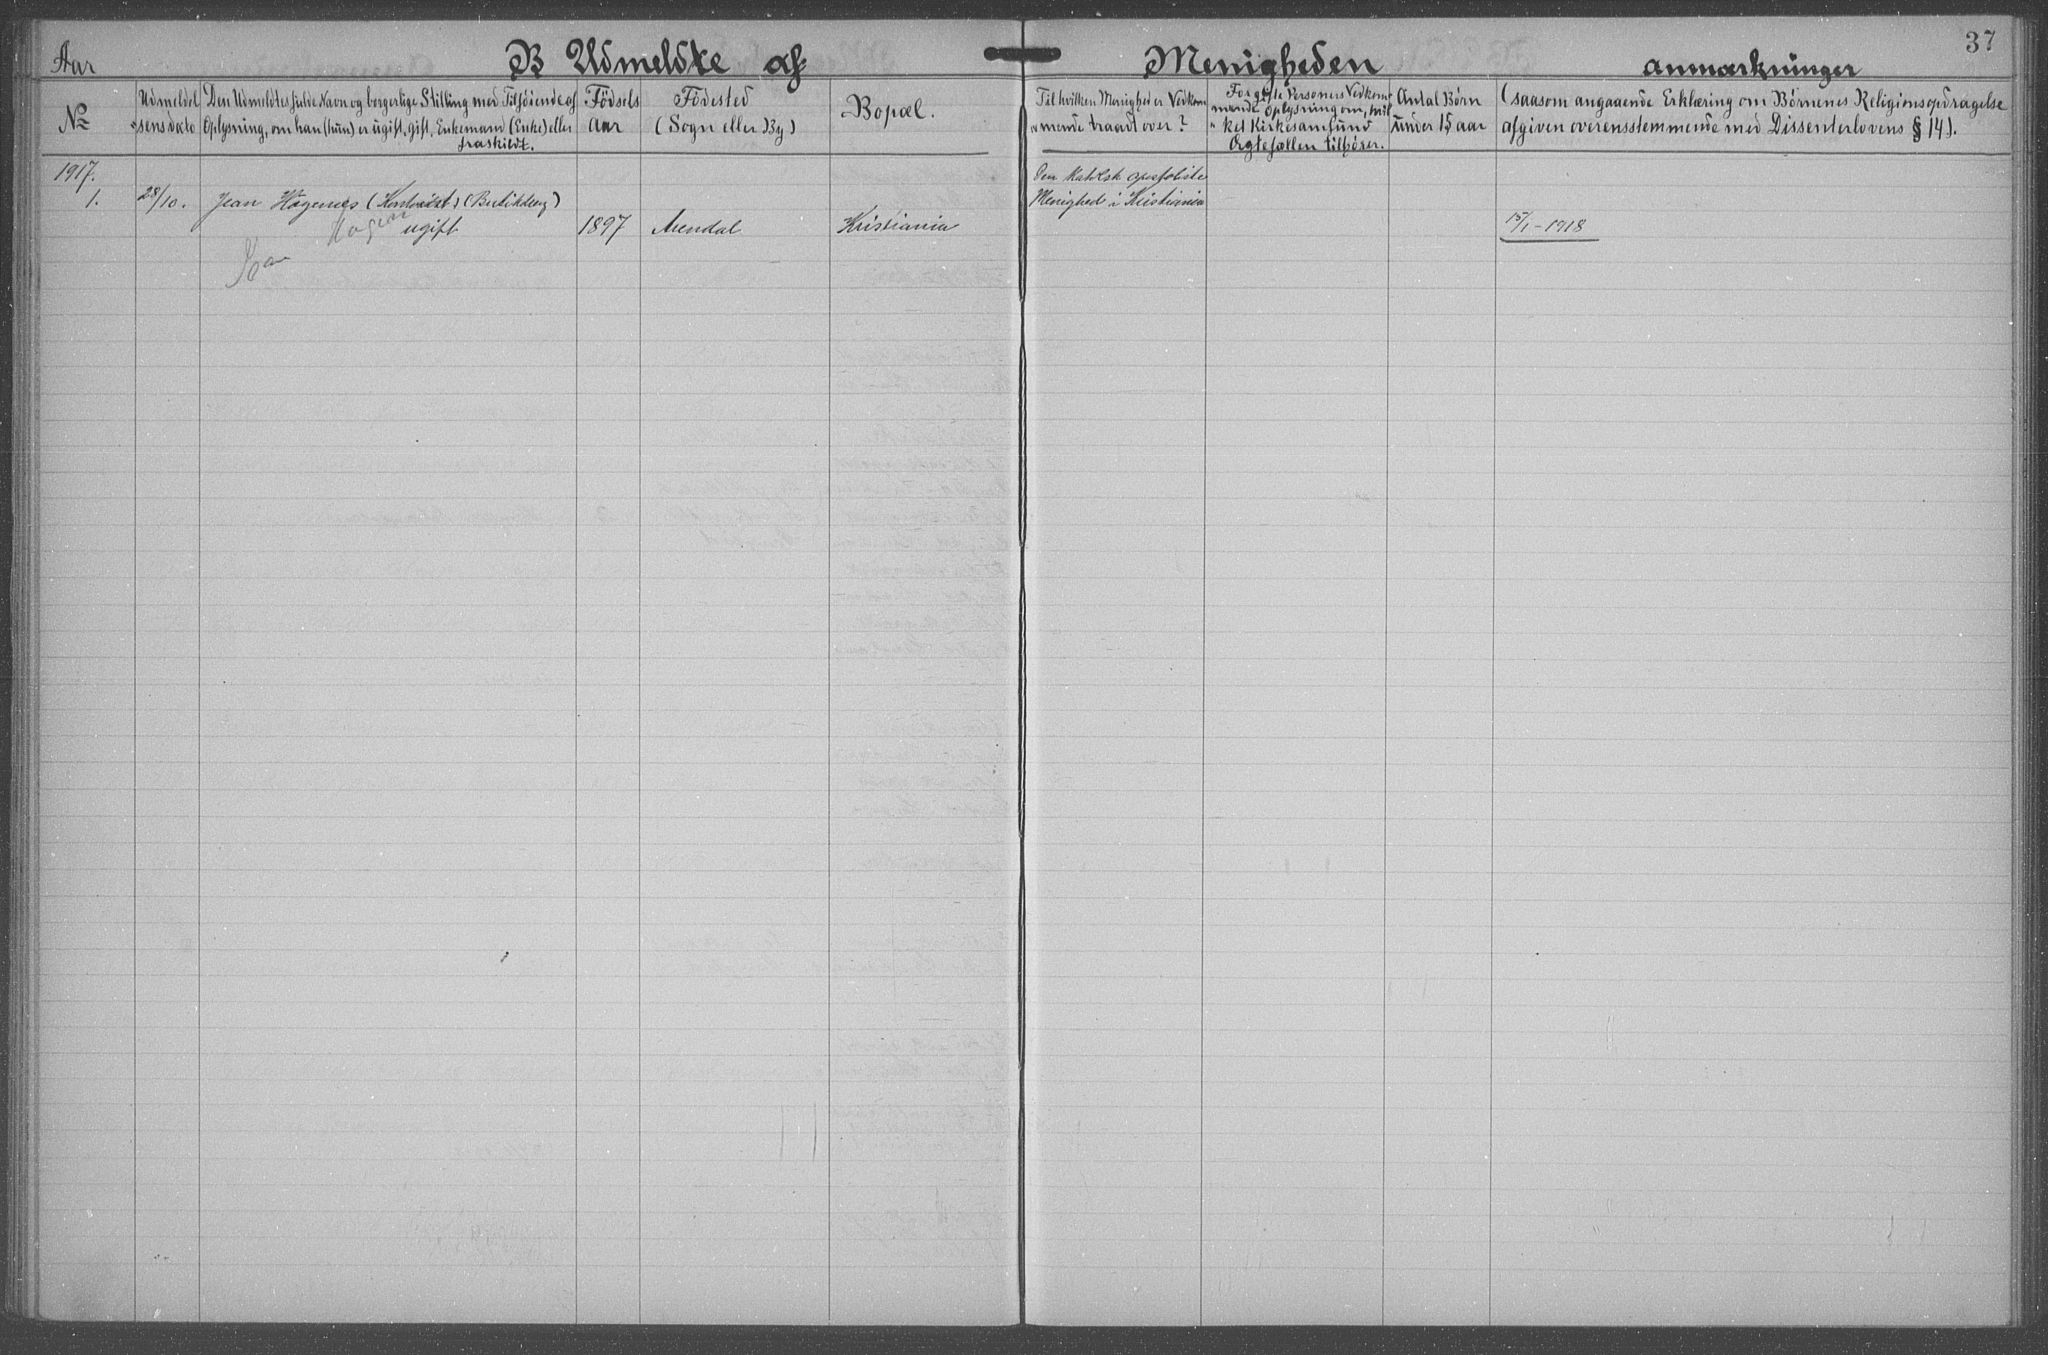 37
Aar
B Udmeldte af Menigheden
Anmærkninger
No
Udmeldel
sensdato
Den Udmeldtes fulde Navn og borgerlige Stilling med Tilføiende af
Oplysning, om han (hun) er ugift, gift, Enkemand (Enke) eller
fraskildt.
Fødsels
Aar
Födested
(Sogn eller By)
Bopæl.
Til hvilken Menighed er Vedkom
mende traadt over?
For gifte Personers Vedkom
mende Oplysning om, hvil
ket Kirkesamfund
Ægtefællen tilhører.
Antal Börn
under 15 aar
(saasom angaaende Erklæring om Børnenes Religionsopdragelse
afgiven overensstemmende med Dissenterlovens § 14).
1917.
1.
28/10.
Jean Hagenes
ugift
1897
Arendal
Kristiania
Den Katolsk apostoliske
Menighed i Kristiania
15/1-1918